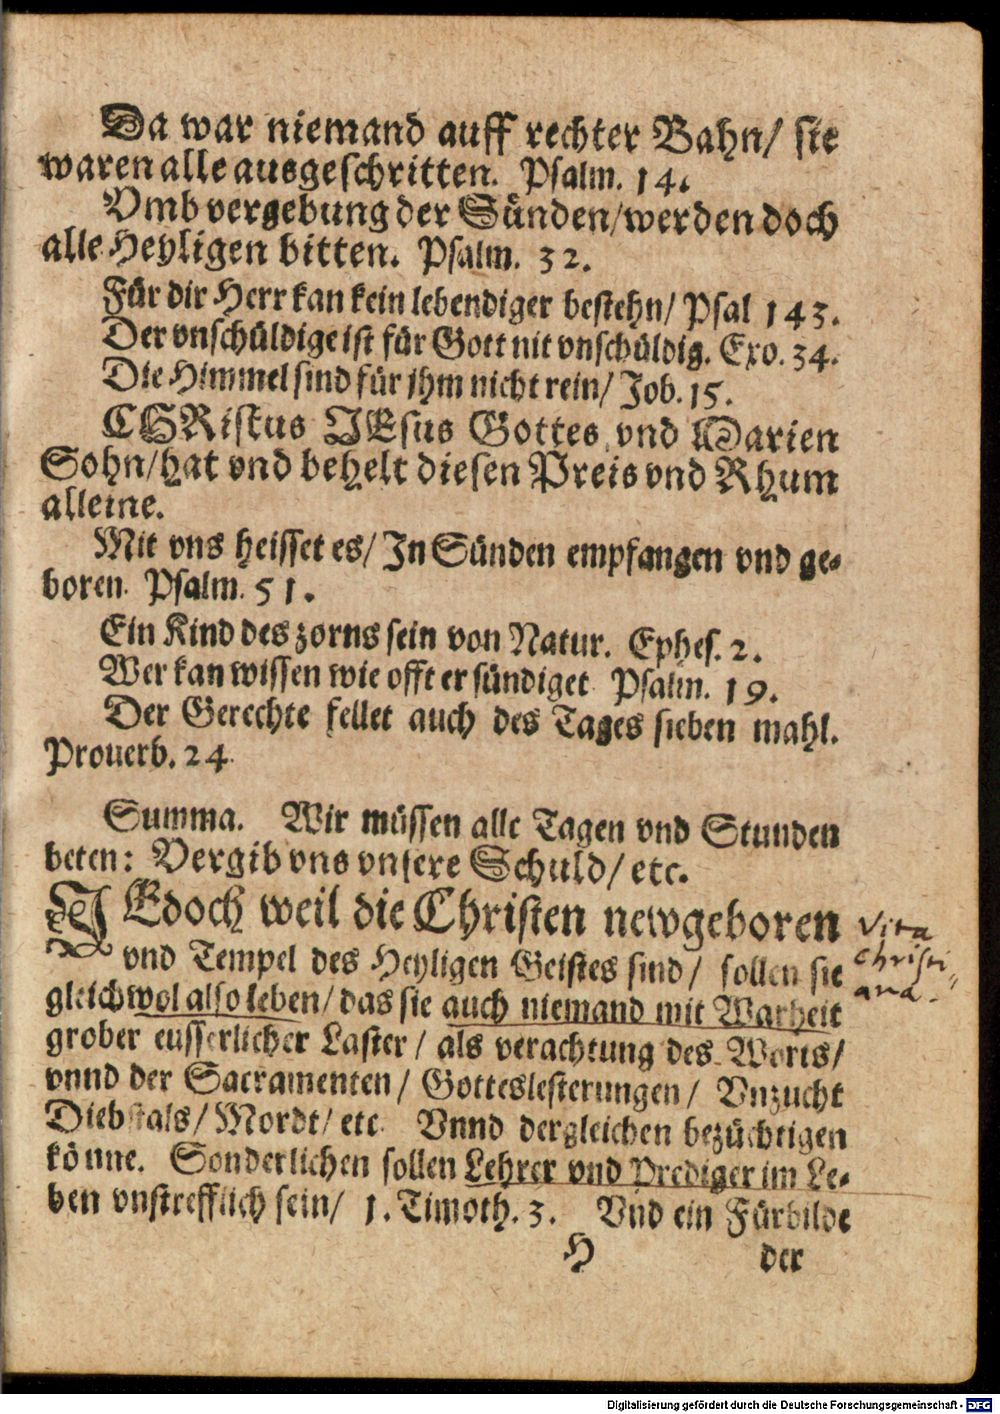 Da war niemand auff rechter Bahn/ sie
waren alle ausgeschritten. Psalm. 14.
Vmb vergebung der Sünden/werden doch
alle Heyligen bitten. Psalm. 32.
Für dir Herr kan kein lebendiger bestehn/ Psal 143.
Der vnschüldige ist für Gott nit vnschüldig. Exo. 34.
Die Himmel sind für jhm nicht rein/ Job. 15.
CHRistus JEsus Gottes vnd Marien
Sohn/hat vnd behelt diesen Preis vnd Rhum
alleine.
Mit vns heisset es/ In Sünden empfangen vnd ge-
boren. Psalm. 51.
Ein Kind des zorns sein von Natur. Ephes. 2.
Wer kan wissen wie offt er sündiget Psalm. 19.
Der Gerechte fellet auch des Tages sieben mahl.
Prouerb. 24.
Summa. Wir müssen alle Tagen vnd Stunden
beten: Vergib vns vnsere Schuld/ etc.
JEdoch weil die Christen newgeboren
vnd Tempel des Heyligen Geistes sind/ sollen sie
gleichwol also leben/ das sie auch niemand mit Warheit
grober eusserlicher Laster/ als verachtung des Worts/
vnnd der Sacramenten/ Gotteslesterungen/ Vnzucht
Diebstals/ Mordt/ etc. Vnnd dergleichen bezüchtigen
könne. Sonderlichen sollen Lehrer vnd Prediger im Le-
ben vnstrefflich sein/ 1. Timoth. 3. Vnd ein Fürbilde
H der
Vita
Christi-
ana.
Digitalisierung gefördert durch die Deutsche Forschungsgemeinschaft - DFG